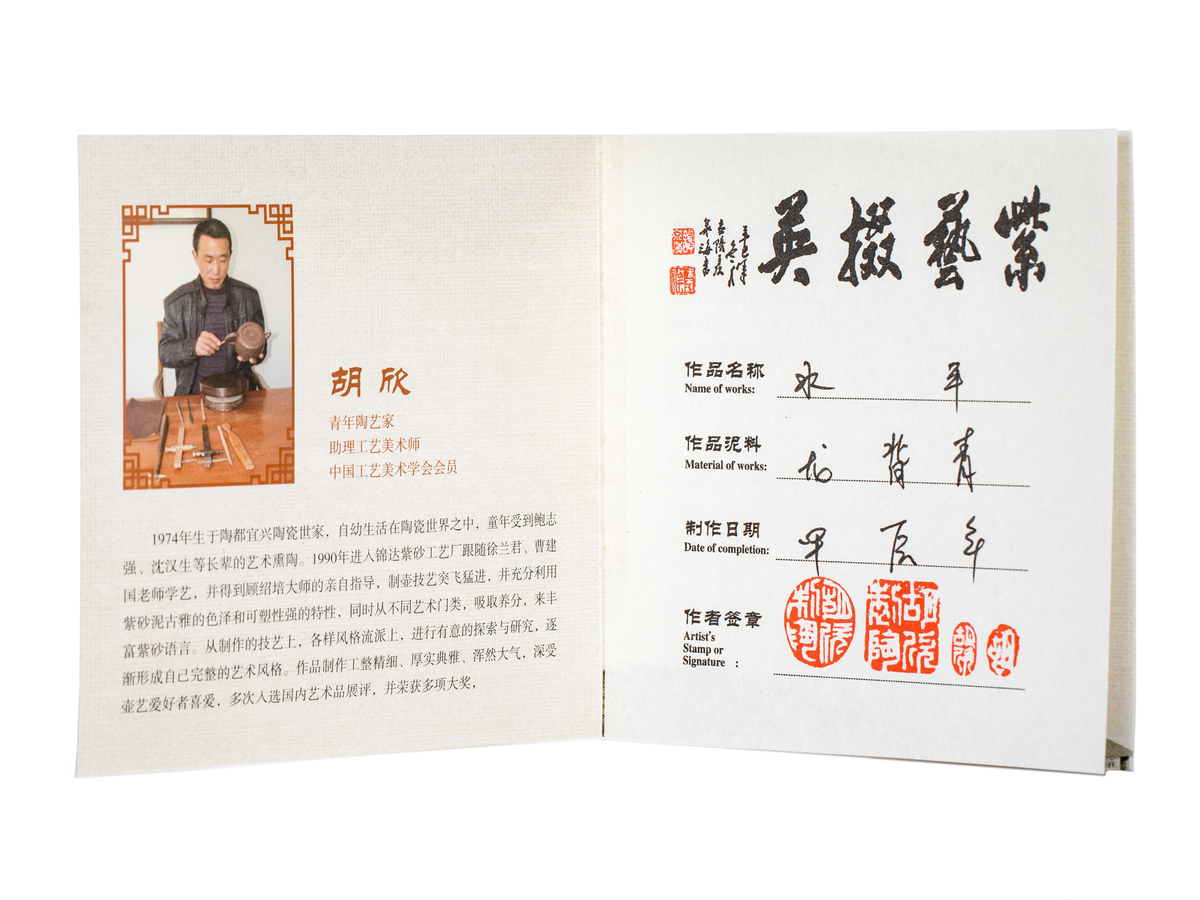 胡欣
青年陶艺家
助理工艺美术师
中国工艺美术学会会员
1974年生于陶都宜兴陶瓷世家，自幼生活在陶瓷世界之中，童年受到鲍志
强、沈汉生等长辈的艺术熏陶。1990年进入锦达紫砂工艺厂跟随徐兰君、曹建
国老师学艺，并得到顾绍培大师的亲自指导，制壶技艺突飞猛进，并充分利用
紫砂泥古雅的色泽和可塑性强的特性，同时从不同艺术门类，吸取养分，来丰
富紫砂语言。从制作的技艺上，各样风格流派上，进行有意的探索与研究，逐
渐形成自己完整的艺术风格。作品制作工整精细、厚实典雅、浑然大气，深受
壶艺爱好者喜爱，多次入选国内艺术品展评，并荣获多项大奖，
紫藝掇英
作品名称 水平
Name of works:
作品泥料 青
Material of works:
制作日期 甲辰年
Date of completion:
作者签章
Artist's
Stamp or
Signature :